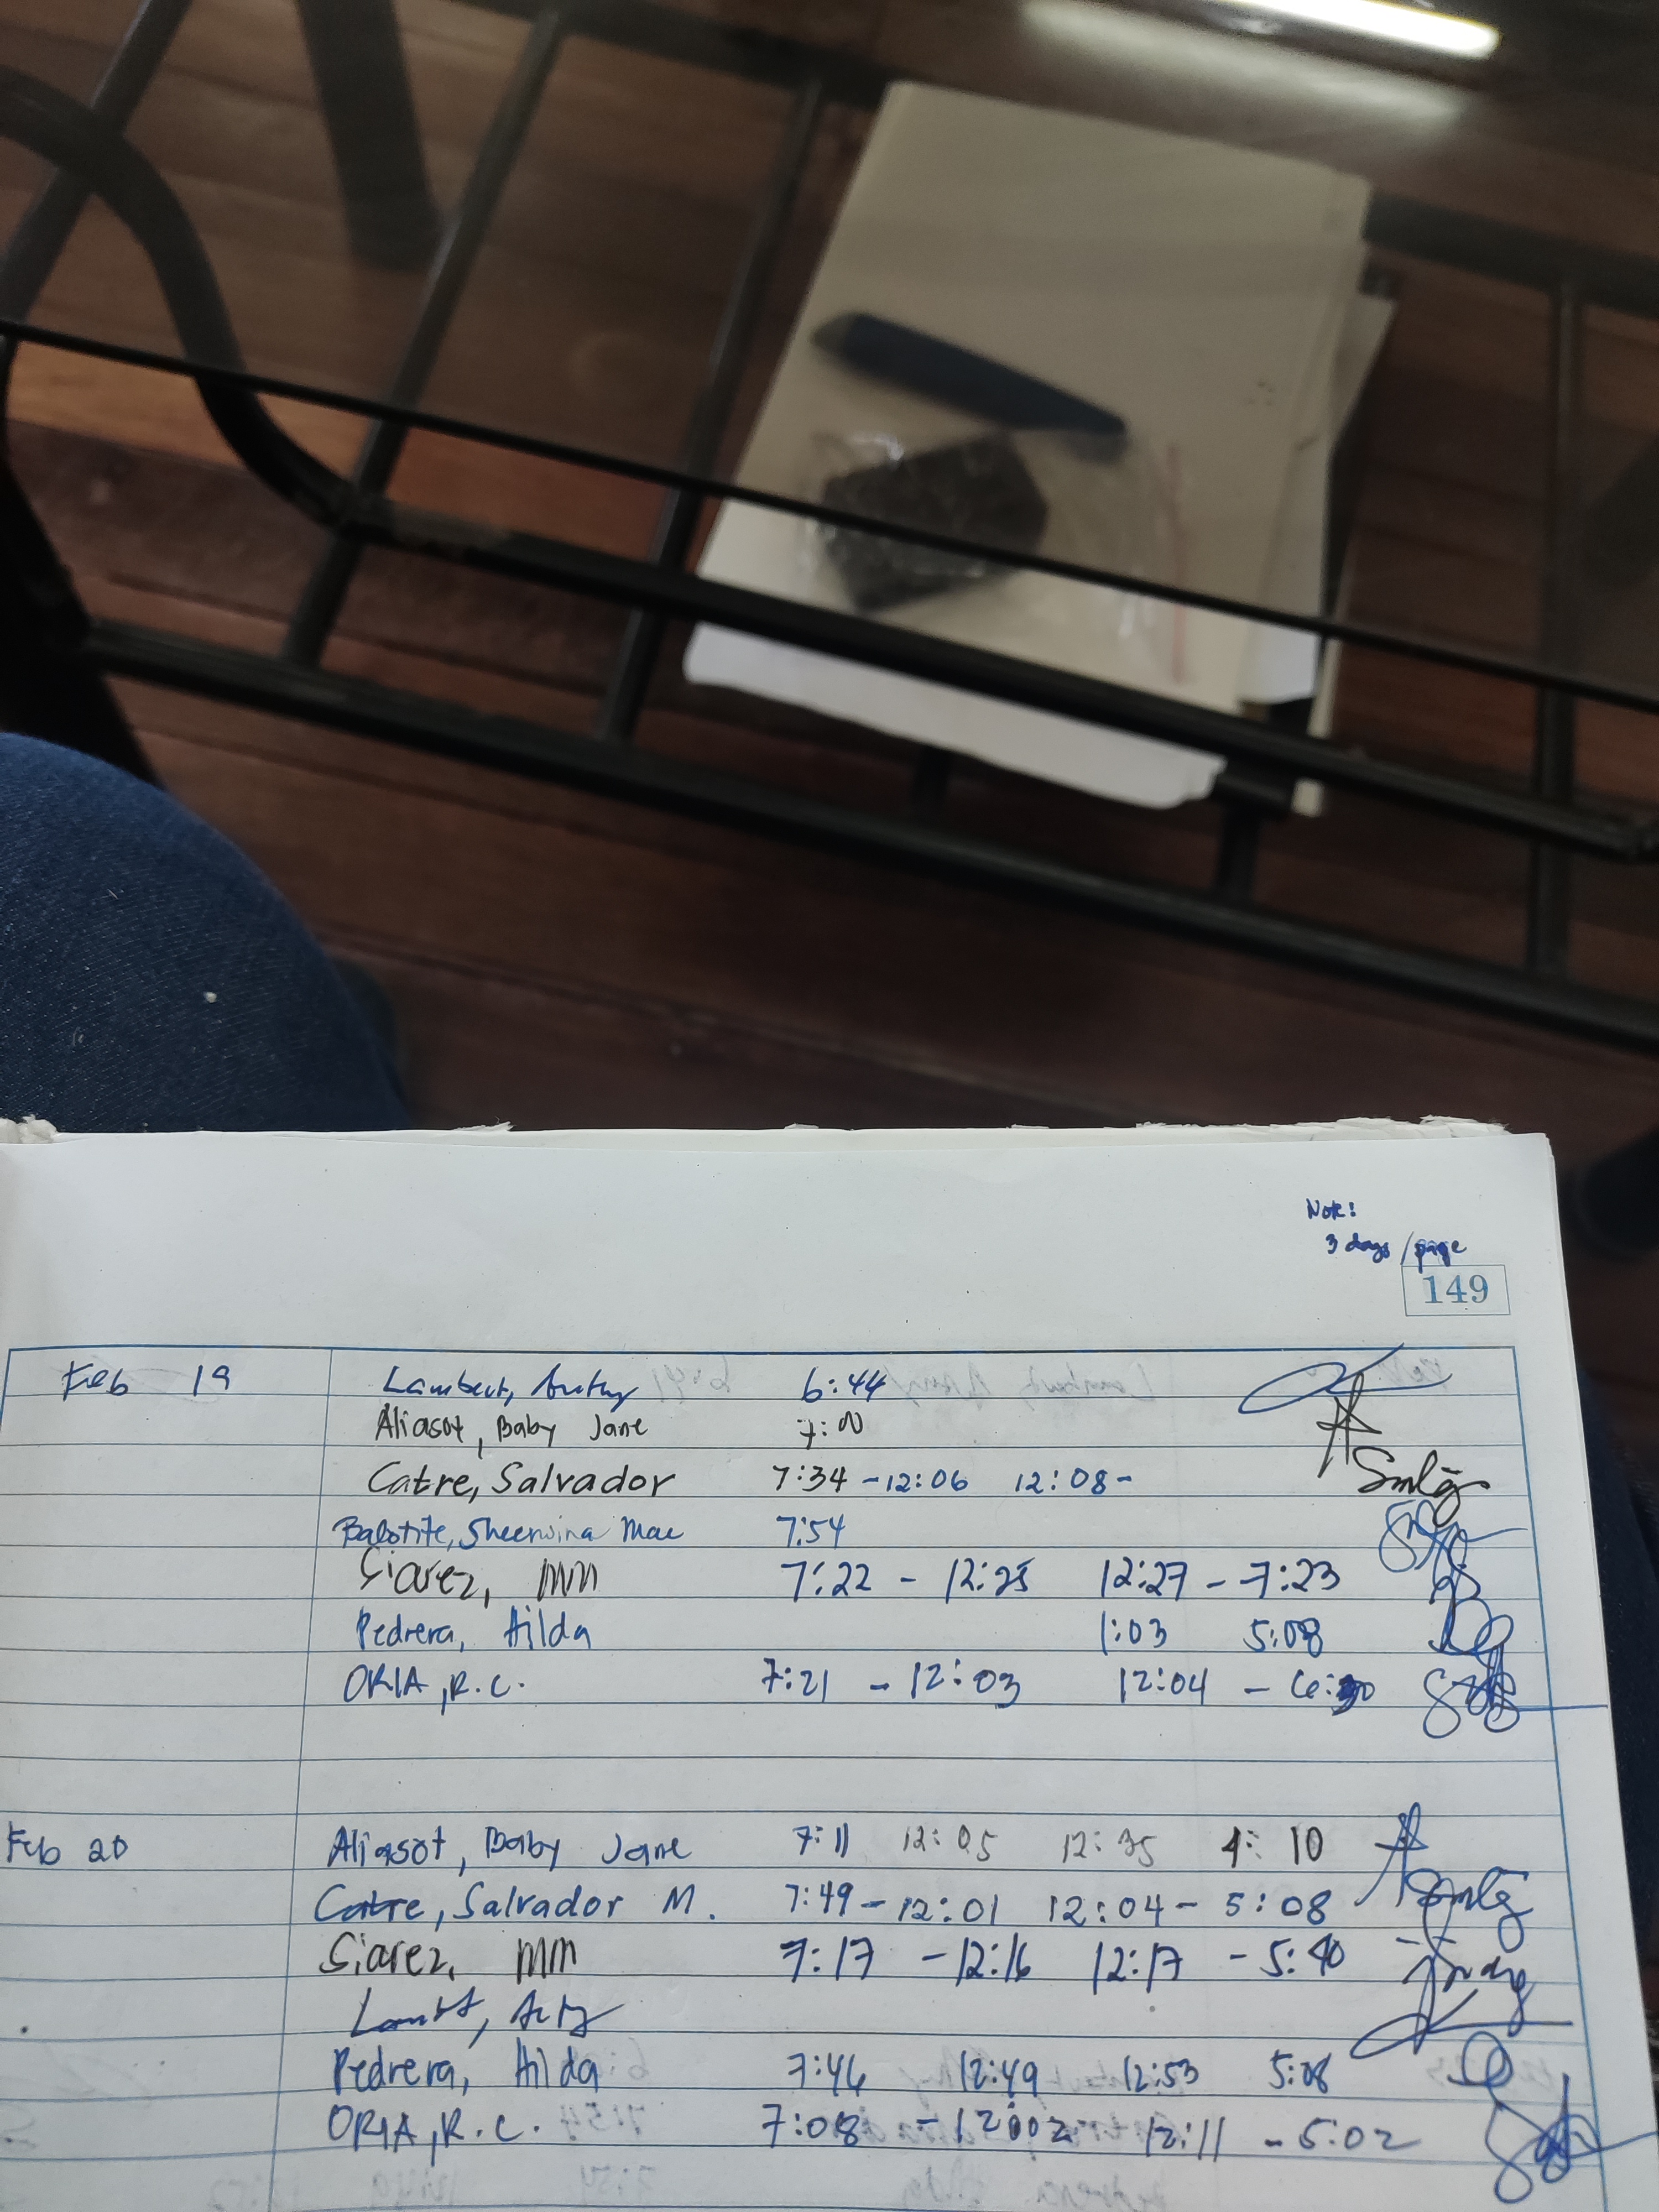 Note:
3 days/page
149
Feb 19 Lambert, 6:44
Aliasot, Baby Jane 7:00
Catre, Salvador 7:34 - 12:06 12:08 -
Balotite, Sheerwina Mae 7:54
Siarez, MM 7:22 - 12:25 12:27 - 7:23
Pedrera, Hilda 1:03 5:08
ORIA, R.C. 7:21 - 12:03 12:04 -
Feb 20 Aliasot, Baby Jane 7:11 12:05 12:35 4:10
Catre, Salvador M. 7:49 - 12:01 12:04 - 5:08
Siarez, MM 7:17 - 12:16 12:17 - 5:40
Pedrera, Hilda 7:46 12:49 12:53 5:08
ORIA, R.C. 7:08 - 12:02 12:11 - 5:02